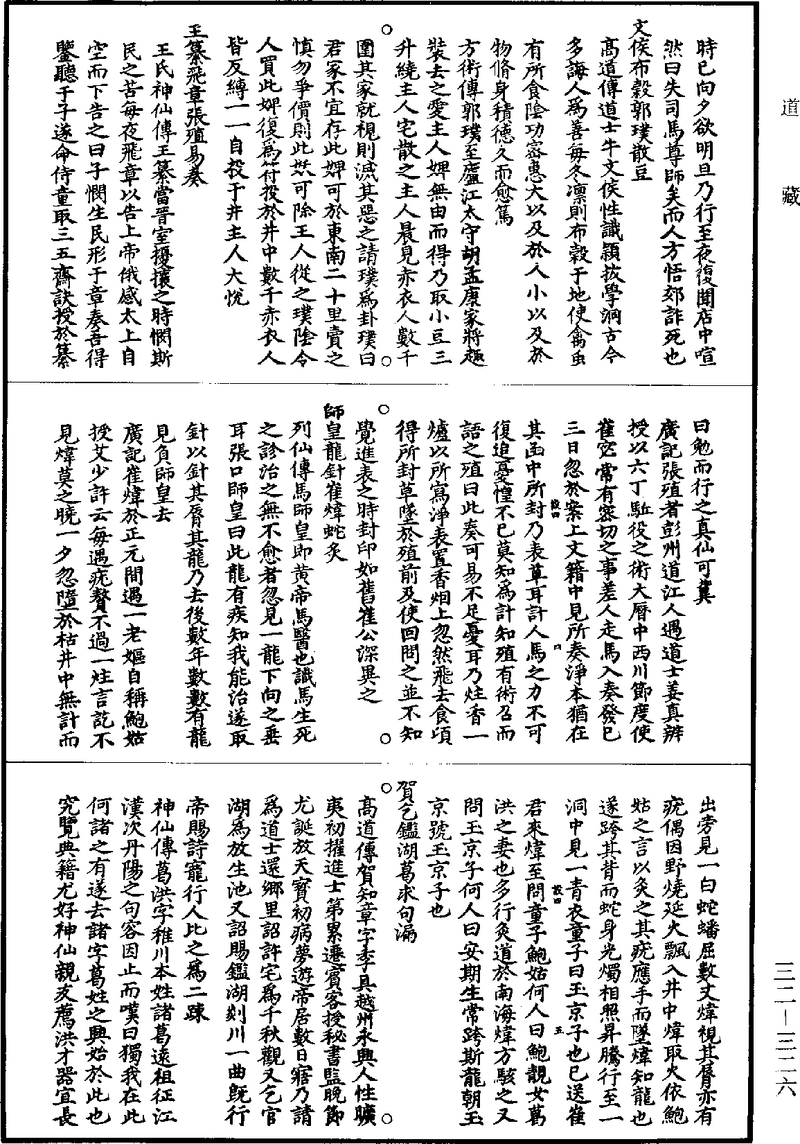 道藏
時已向夕欲明旦乃行至夜復聞店中喧
然曰失司馬尊師矣而人方悟郊詐死也
文侯布穀郭璞散豆
高道傳道士牛文侯性識穎拔學洞古今
多誨人為善每冬凛則布穀于地使禽虫
有所食陰功密惠大以及於人小以及於
物脩身積德久而愈篤
方術傳郭璞至廬江太守胡孟康家將趣
裝去之愛主人婢無由而得乃取小豆三
升繞主人宅散之主人晨見赤衣人數千
圍其家就視則滅其惡之請璞為卦璞曰
君家不宜存此婢可於東南二十里賣之
慎勿爭價則此妖可除主人從之璞陰令
人買此婢復為符投於井中數千赤衣人
皆反縛一一自投于井主人大悅
王纂飛章張殖易奏
王氏神仙傳王纂當晉室擾攘之時憫斯
民之苦每夜飛章以告上帝俄感太上自
空而下告之曰子憫生民形于章奏吾得
鑒聽于子遂命侍童取三五齋訣授於纂
曰勉而行之真仙可冀
廣記張殖者彭州道江人遇道士姜真辨
授以六丁駈役之術大曆中西川節度使
崔寧常有密切之事差人走馬入奏發已
三日忽於案上文籍中見所奏淨本猶在
其函中所封乃表草耳計人馬之力不可
復追憂惶不已莫知為計知殖有術召而
語之殖曰此奏可易不足憂耳乃炷香一
爐以所寫淨表置香烟上忽然飛去食頃
得所封草墜於殖前及使回問之並不知
覺進表之時封印如舊崔公深異之
師皇龍針崔煒蛇灸
列仙傳馬師皇即黄帝馬醫也識馬生死
之診治之無不愈者忽見一龍下向之垂
耳張口師皇曰此龍有疾知我能治遂取
針以針其脣其龍乃去後數年數數有龍
見負師皇去
廣記崔煒於正元間遇一老嫗自稱鮑姑
授艾少許云每遇疣贅不過一炷言訖不
見煒莫之曉一夕忽墮於枯井中無計而
出旁見一白蛇蟠屈數丈煒視其脣亦有
疣偶因野燒延火飄入井中煒取火依鮑
姑之言以灸之其疣應手而墜煒知龍也
遂跨其背而蛇身光燭相照昇騰行至一
洞中見一青衣童子曰玉京子也已送崔
君來煒至問童子鮑姑何人曰鮑靚女葛
洪之妻也多行灸道於南海煒方駭之又
問玉京子何人曰安期生常跨斯龍朝玉
京號玉京子也
賀乞鑑湖葛求句漏
高道傳賀知章字季真越州永興人性曠
夷初擢進士第累遷賓客授秘書監晚節
尤誕放天寶初病夢遊帝居數日寤乃請
為道士還鄉里詔許宅為千秋觀又乞官
湖為放生池又詔賜鑑湖剡川一曲既行
帝賜詩寵行人比之為二踈
神仙傳葛洪字稚川本姓諸葛遠祖征江
漢次丹陽之句容因止而嘆曰獨我在此
何諸之有遂去諸字葛姓之興始於此也
究覽典籍尤好神仙親友薦洪才器宜長
三二—三二六